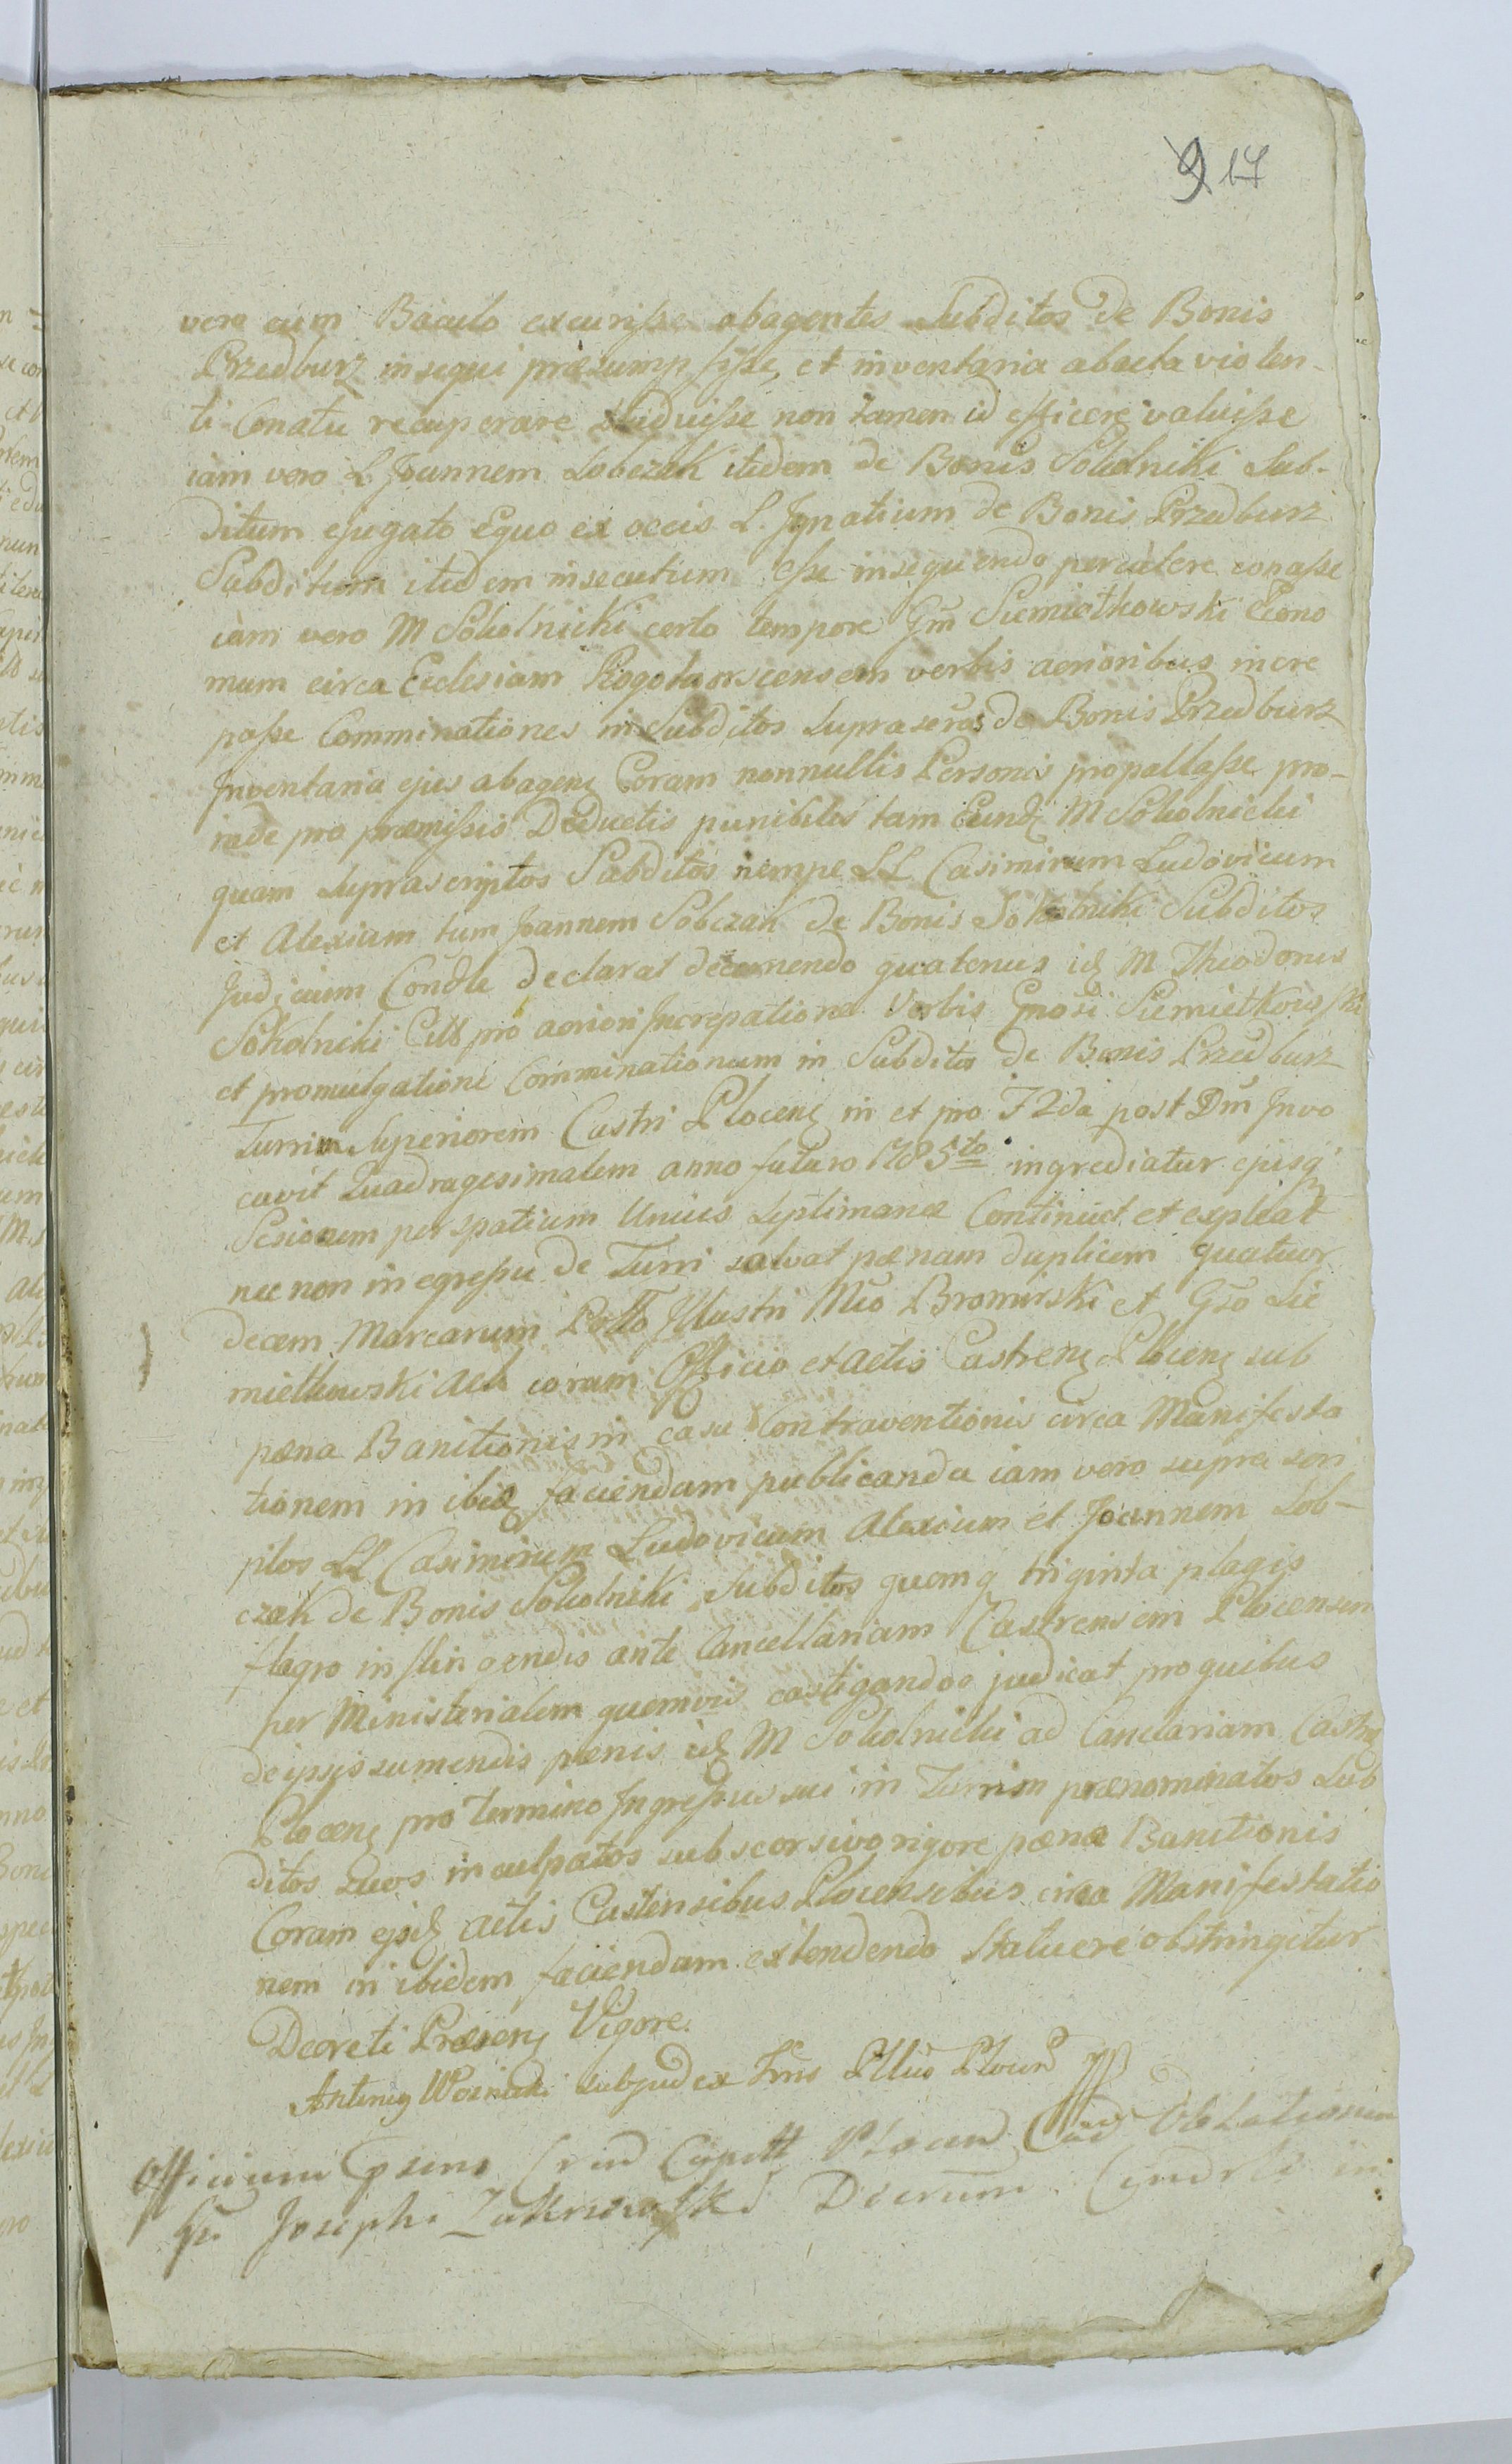 9 17
vero cum Baculo excurrisse abagentes Subditos de Bonis
Przedburz insequi præsumpsisse, et inventaria abacta violen-
ti Conatu recuperare studuisse non tamen id efficere valuisse
iam vero L Joannem Sobczak itidem de Bonis Sokolniki Sub-
ditum ejugato Equo ex occis L. Ignatium de Bonis Przedburz
Subditum itidem insecutum esse insequendo percutere conasse
iam vero M Sokolnicki certo tempore Gm Siemiątkowski Econo
mum circa Ecclesiam Rogotworscensem verbis acrioribus incre
passe Comminationes in Subditos suprascros de Bonis Przedburz
Inventaria ejus abagen Coram nonnullis Personis propallasse pro-
inde pro præmissis Deductis punibiles tam Eund M Sokolnicki
quam suprascriptos Subditos nempe LL Casimirum Ludovicum
et Alexium tum Joannem Sobczak de Bonis Sokolniki Subditos
Judicium Condle declarat decernendo quatenus id M Theodorus
Sokolniki Citt pro acriori Increpatione Verbis Gnosi Siemiętkowski
et promulgatione Comminationum in Subditos de Bonis Przedburz
Turrim Superiorem Castri Plocen in et pro F2da post Dm Invo
cavit Quadragesimalem anno futuro 1785to ingrediatur ejusq
Sesionem per spatium Unius Septimanæ Continuet et expleat
nec non in egressu de Turri solvat pænam duplicem quatuor
decem Marcarum Illustri Mco Bromirski et Gso Sie
miętkowski Actt coram Officio et Actis Castren Plocen sub
pæna Banitionis in casu Contraventionis circa Manifesta
tionem in ibid faciendam publicanda iam vero supra scri
ptos LL Casimirum Ludovicum Alexium et Joannem Sob-
czak de Bonis Sokolniki Subditos quemq triginta plagis
flagro infligendis ante Cancellariam Castrensem Plocensem
per Ministerialem quemvis castigandos judicat pro quibus
de ipsis sumendis pænis id M Sokolnicki ad Canclariam Castren
Plocen pro termino Ingressus sui in Turrim prænominatos Sub
ditos Suos inculpatos sub scorsivo rigore pænæ Banitionis
Coram ejsd actis Castrensibus Plocensibus circa Manifestatio
nem in ibidem faciendam extendendo Statuere obstringitur
Decreti Præsen Vigore.
Antoniy Woźnicki subjudex Trris Pllus Plocen
Officium Cap Plocen ad Oblationem
Gsi Josephi Zakrzewski Decretum Condle in